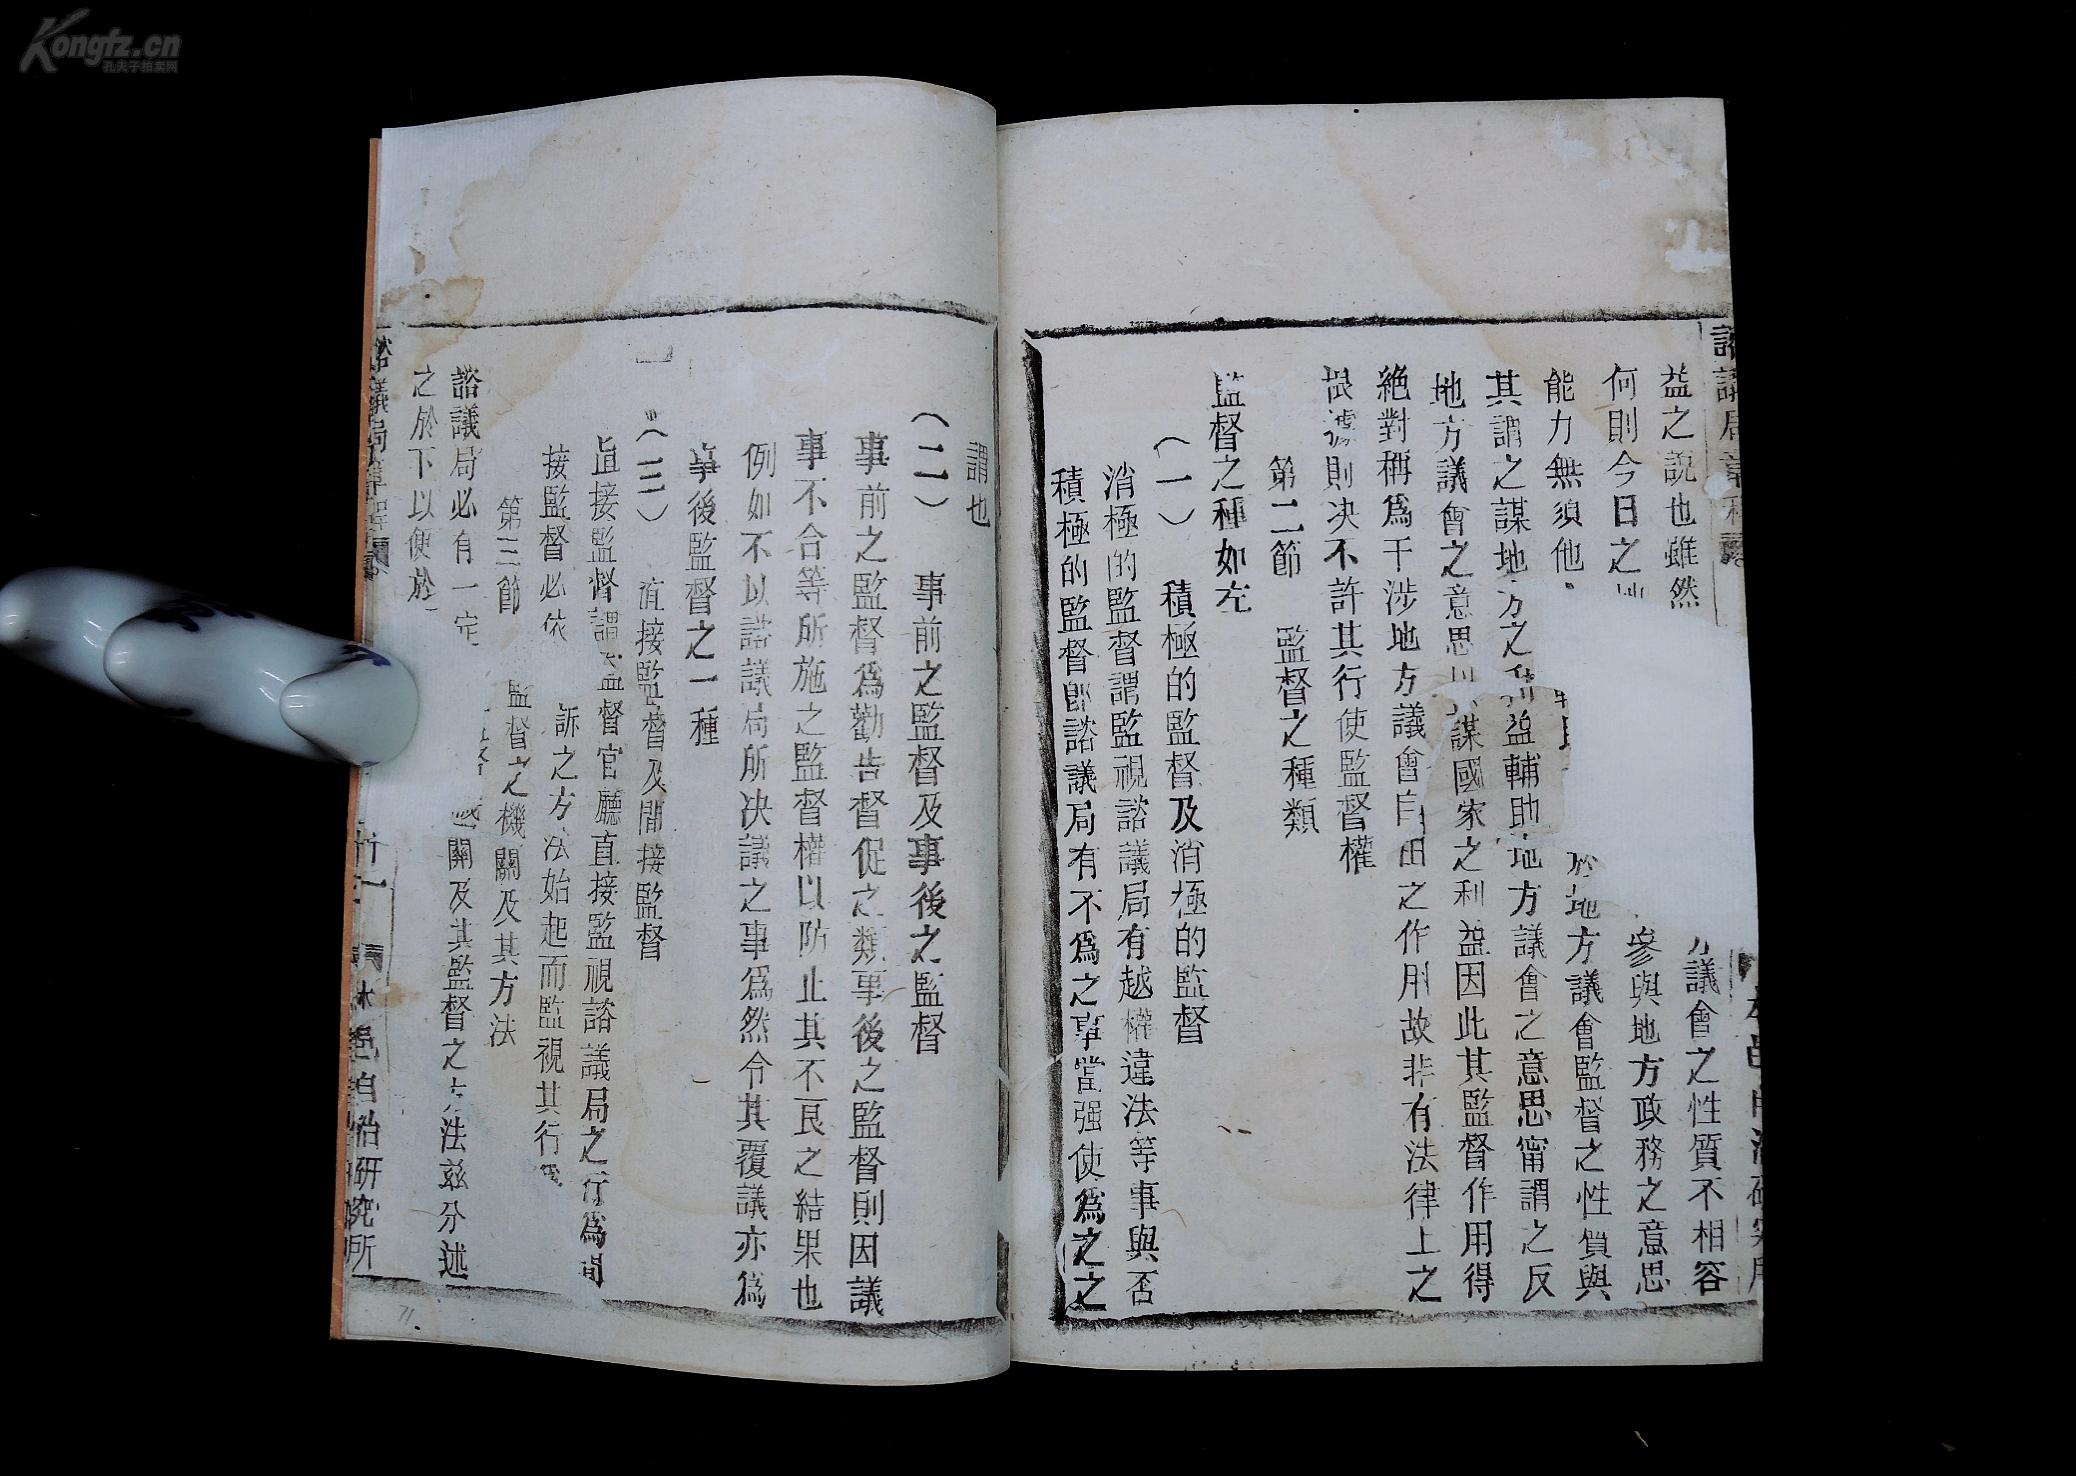 Kongfz.cn
孔夫子拍卖网
益之說也雖然
議會之性質不相容
何則今日之
參與地方政務之意思
能力無須他
地方議會監督之性質與
其謂之謀地方之利益輔助地方議會之意思甯謂之反
地方議會之意思
謀國家之利益因此其監督作用得
絶對稱爲干涉地方議會自由之作用故非有法律上之
根據則决不許其行使監督權
第二節　監督之種類
監督之種如左
（一）　積極的監督及消極的監督
消極的監督謂監視諮議局有越權違法等事與否
積極的監督卽諮議局有不爲之事當强使爲之之
謂也
（二）　事前之監督及事後之監督
事前之監督爲勸告督促之類事後之監督則因議
事不合等所施之監督權以防止其不良之結果也
例如不以諮議局所决議之事爲然令其覆議亦爲
事後監督之一種
（三）　直接監督及間接監督
直接監督謂監督官廳直接監視諮議局之行爲間
接監督必依
訴之方法始起而監視其行
第三節
監督之機關及其方法
諮議局必有一定
關及其監督之方法兹分述
之於下以便於
自治研究所
71